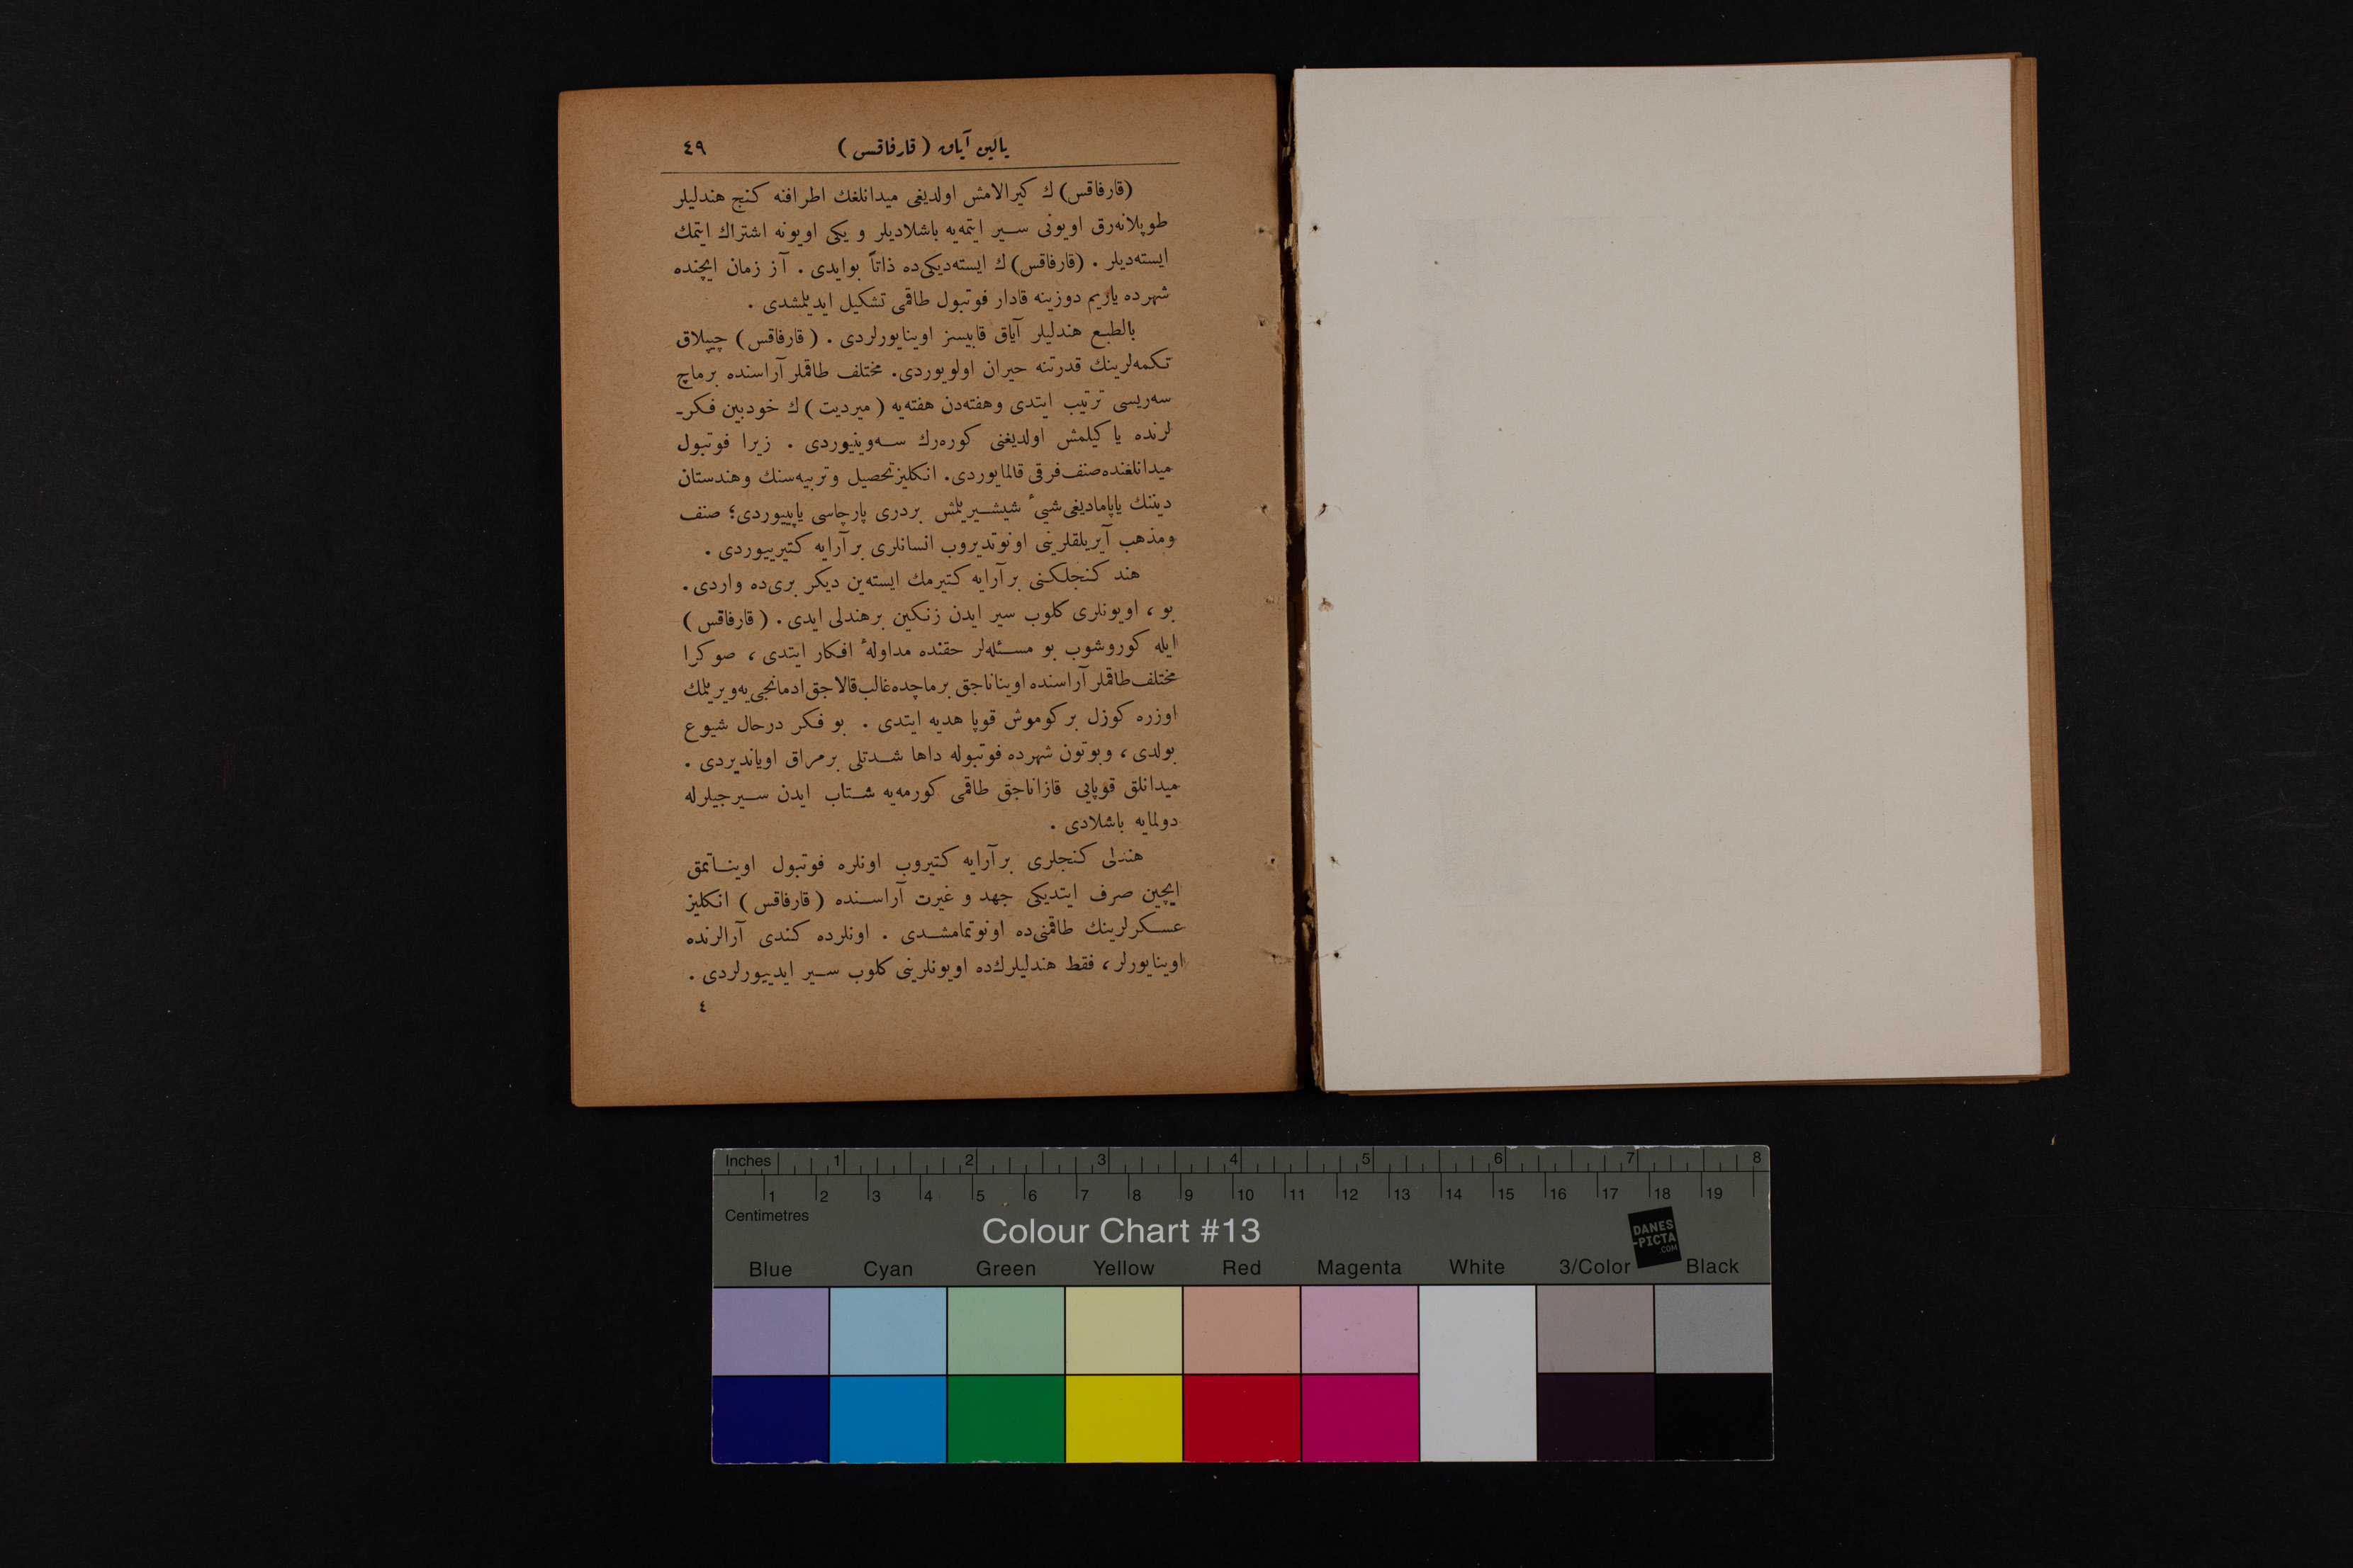 يالين آياق ( قارفاقس ) ٤٩
(قارفاقس) ك كيرالامش اولديغى ميدانلغك اطرافنه كنج هنديلر
طوپلانه‌رق اويونى سير ايتمه‌يه باشلاديلر و يكى اويونه اشتراك ايتمك
ايسته‌ديلر . (قارفاقس) ك ايسته‌ديكى‌ده ذاتاً بوايدى . آز زمان ايچنده
شهرده ياريم دوزينه قادار فوتبول طاقمى تشكيل ايديلمشدى .
بالطبع هندليلر آياق قابيسز اوينايورلردى . ( قارفاقس ) چيپلاق
تكمه‌لرينك قدرتنه حيران اولويوردى. مختلف طاقملر آراسنده برماچ
سه‌ريسى ترتيب ايتدى وهفته‌دن هفته‌يه ( ميرديت ) ك خودبين فكر-
لرنده ياكيلمش اولديغنى كوره‌رك سه‌وينيوردى . زيرا فوتبول
ميدانلغنده صنف فرقى قالمايوردى. انكليز تحصيل وتربيه‌سنك وهندستان
ديننك ياپاماديغى شيئ شيشيريلمش بردرى پارچاسى ياپييوردى؛ صنف
ومذهب آيريلقلرينى اونوتديروب انسانلرى برآرايه كتيرييوردى .
هند كنجلكنى برآرايه كتيرمك ايسته‌ين ديكر برى‌ده واردى .
بو ، اويونلرى كلوب سير ايدن زنكين برهندلى ايدى . ( قارفاقس )
ايله كوروشوب بو مسئله‌لر حقنده مداولهٔ افكار ايتدى ، صوكرا
مختلف طاقملر آراسنده اويناناجق برماچده غالب قالاجق ادمانجى‌يه ويريلمك
اوزره كوزل بر كوموش قوپا هديه ايتدى . بو فكر درحال شيوع
بولدى ، وبوتون شهرده فوتبوله داها شدتلى برمراق اويانديردى .
ميدانلق قوپايى قازاناجق طاقمى كورمه‌يه شتاب ايدن سيرجيلرله
دولمايه باشلادى .
هندلى كنجلرى برآرايه كتيروب اونلره فوتبول اويناتمق
ايچين صرف ايتديكى جهد و غيرت آراسنده ( قارفاقس ) انكليز
عسكرلرينك طاقمنى‌ده اونوتمامشدى . اونلرده كندى آرالرنده
اوينايورلر ، فقط هندليلرك‌ده اويونلرينى كلوب سير ايدييورلردى .
٤
Inches 1 2 3 4 5 6 7 8
1 2 3 4 5 6 7 8 9 10 11 12 13 14 15 16 17 18 19
Centimetres
Colour Chart #13
DANES
-PICTA
.COM
Blue Cyan Green Yellow Red Magenta White 3/Color Black